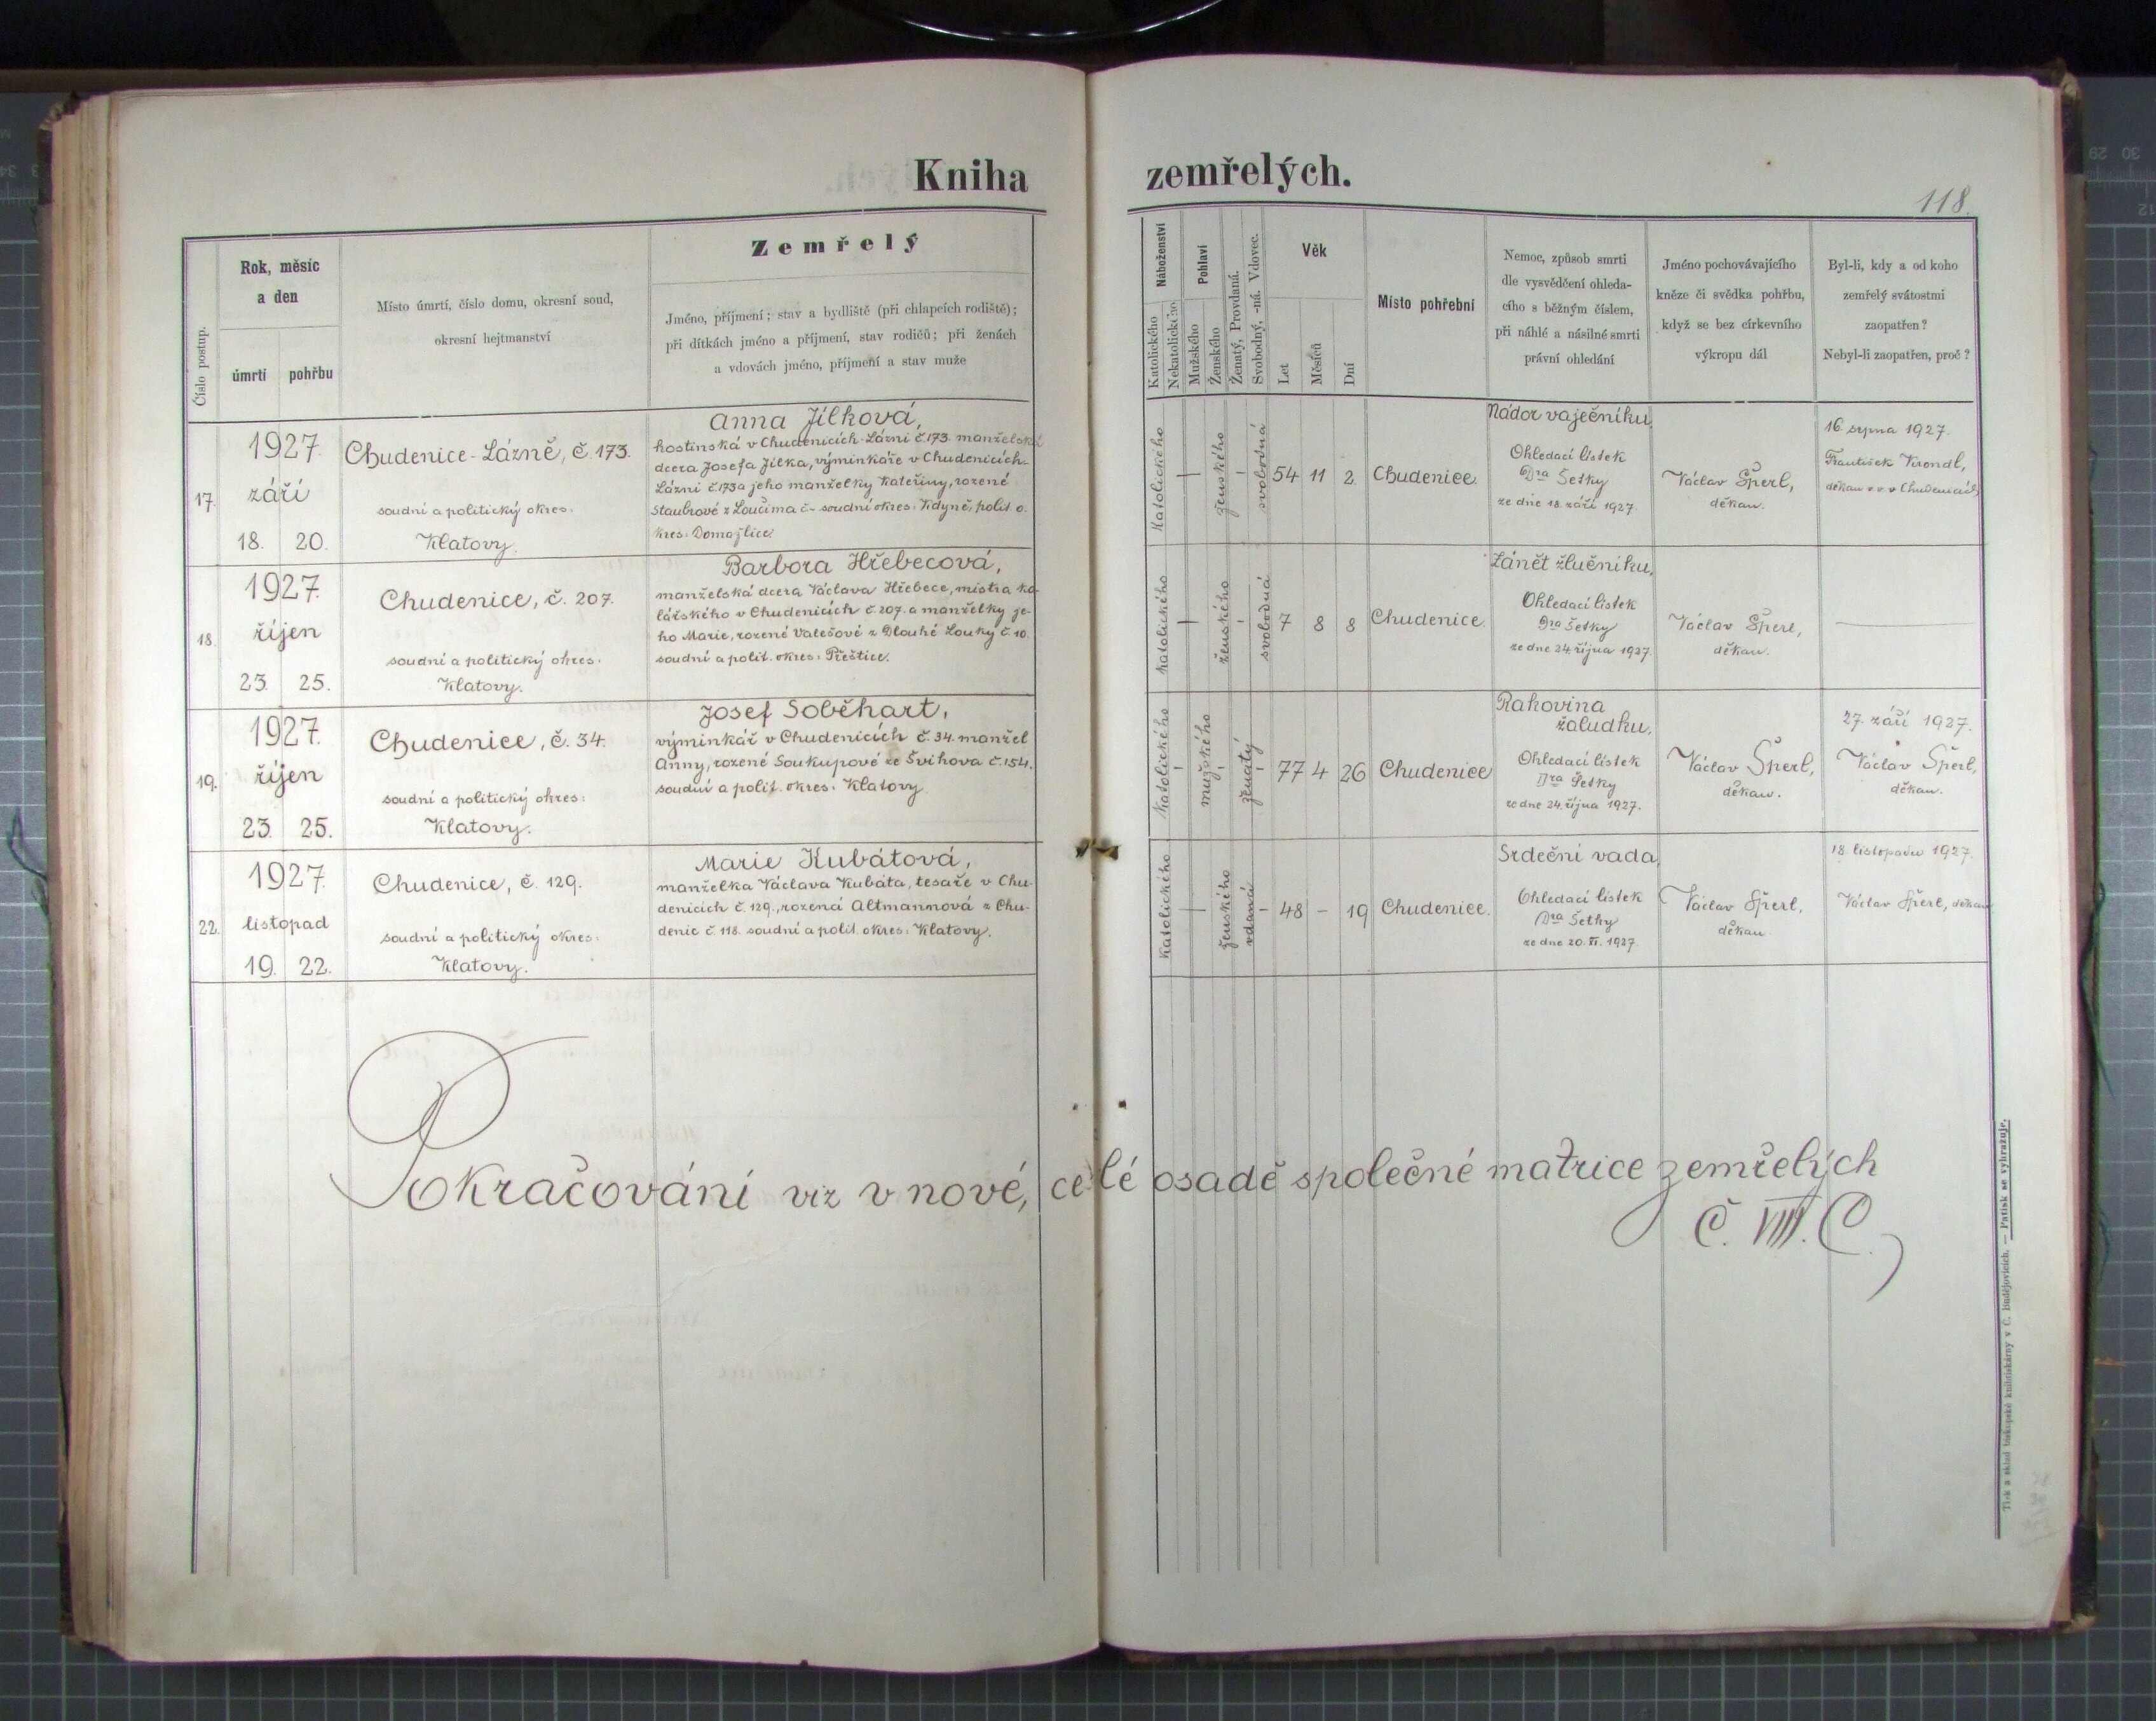 Kniha
zemřelých.
118.
Číslo postup.
Rok, měsíc
a den
úmrtí
pohřbu
Místo úmrtí, číslo domu, okresní soud,
okresní hejtmanství
Zemřelý
Jméno, příjmení; stav a bydliště (při chlapcích rodiště);
při dítkách jméno a příjmení, stav rodičů; při ženách
a vdovách jméno, příjmení a stav muže
Náboženství
Katolického
Nekatolického
Pohlaví
Mužského
Ženského
Ženatý, Provdaná.
Svobodný, -ná. Vdovec.
Věk
Let
Měsíců
Dní
Místo pohřební
Nemoc, způsob smrti
dle vysvědčení ohleda-
cího s běžným číslem,
při náhlé a násilné smrti
právní ohledání
Jméno pochovávajícího
kněze či svědka pohřbu,
když se bez církevního
výkropu dál
Byl-li, kdy a od koho
zemřelý svátostmi
zaopatřen?
Nebyl-li zaopatřen, proč?
17.
1927.
září
18. 20.
Chudenice-Lázně, č. 173.
soudní a politický okres:
Klatovy.
Anna Jílková,
hostinská v Chudenicích-Lázni č. 173. manželská
dcera Josefa Jílka, výminkáře v Chudenicích-
Lázni č. 173 a jeho manželky Kateřiny, rozené
Staubrové z Loučima č - soudní okres: Kdyně, polit. o-
kres: Domažlice.
Katolického
ženského
svobodná
54 11 2
Chudenice.
Nádor vaječníku,
Ohledací lístek
Dra Šetky
ze dne 18. září 1927.
Václav Šperl,
děkan.
16. srpna 1927.
František Krondl,
děkan v.v. v Chudenicích
18.
1927.
říjen
23. 25.
Chudenice, č. 207.
soudní a politický okres:
Klatovy.
Barbora Hřebecová,
manželská dcera Václava Hřebece, mistra ko-
lářského v Chudenicích č. 207. a manželky je-
ho Marie, rozené Valešové z Dlouhé Louky č. 10.
soudní a polit. okres: Přeštice.
Katolického
ženského
svobodná
7 8 8
Chudenice.
Zánět žlučníku,
Ohledací lístek
Dra Šetky
ze dne 24. října 1927.
Václav Šperl,
děkan.
19.
1927.
říjen
23. 25.
Chudenice, č. 34.
soudní a politický okres:
Klatovy.
Josef Soběhart,
výminkář v Chudenicích č. 34. manžel
Anny, rozené Soukupové ze Švihova č. 154.
soudní a polit. okres: Klatovy
Katolického
mužského
ženatý
77 4 26
Chudenice
Rakovina
žaludku,
Ohledací lístek
Dra Šetky
ze dne 24. října 1927.
Václav Šperl,
děkan.
27. září 1927.
Václav Šperl,
děkan.
22.
1927.
listopad
19. 22.
Chudenice, č. 129.
soudní a politický okres:
Klatovy.
Marie Kubátová,
manželka Václava Kubáta, tesaře v Chu-
denicích č. 129., rozená Altmannová z Chu-
denic č. 118. soudní a polit. okres: Klatovy.
Katolického
ženského
vdaná
48 - 19
Chudenice.
Srdeční vada,
Ohledací lístek
Dra Šetky
ze dne 20. XI. 1927.
Václav Šperl,
děkan.
18. listopadu 1927.
Václav Šperl, děkan
Pokračování viz v nové, celé osadě společné matrice zemřelých
Č. VIII. C.
Tisk a sklad biskupské knihtiskárny v Č. Budějovicích. — Patisk se vyhražuje.